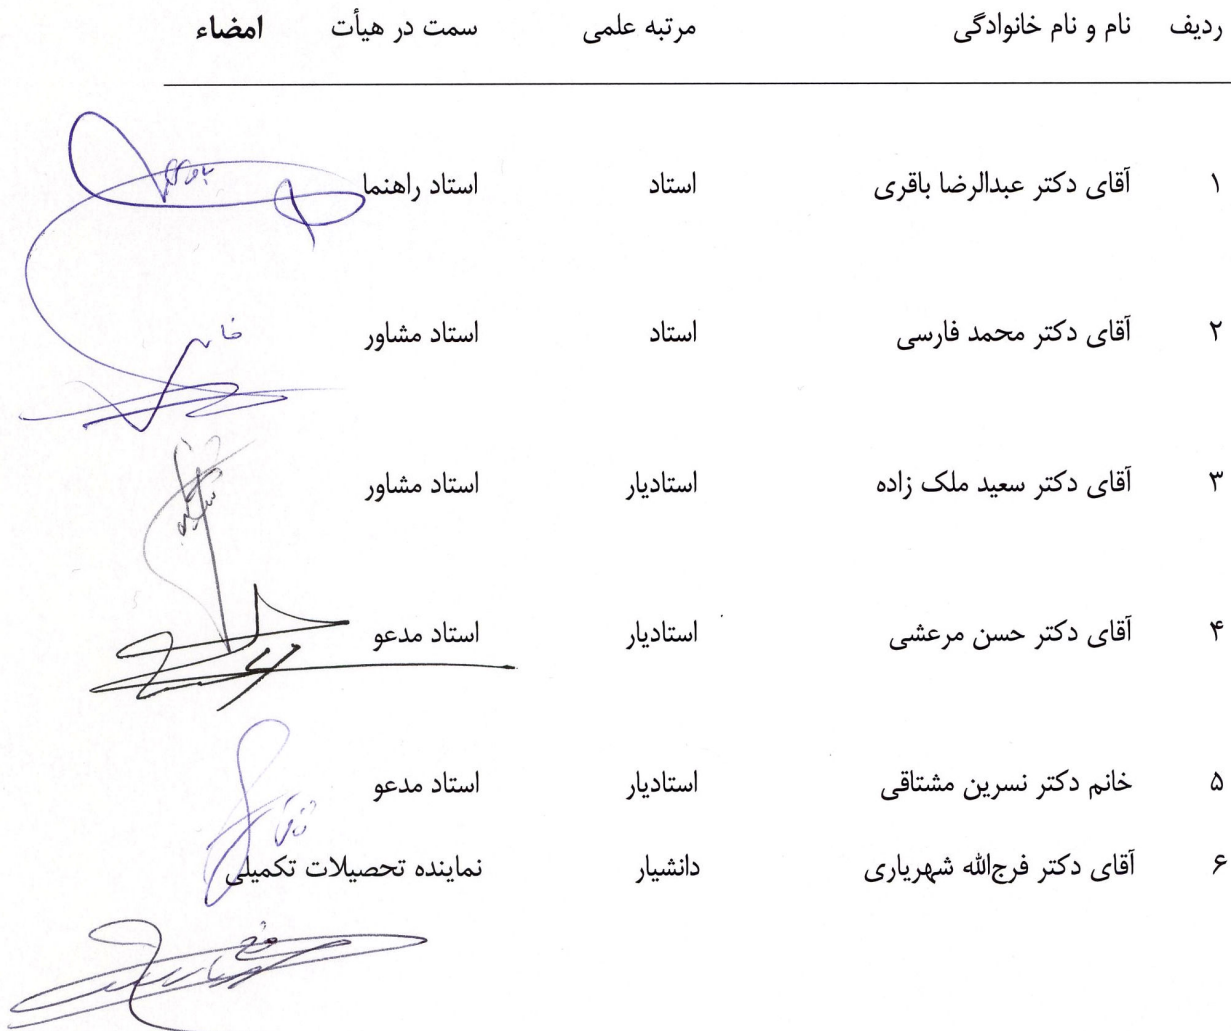 ردیف نام و نام خانوادگی مرتبه علمی سمت در هیأت امضاء
۱ آقای دکتر عبدالرضا باقری استاد استاد راهنما
۲ آقای دکتر محمد فارسی استاد استاد مشاور
۳ آقای دکتر سعید ملک زاده استادیار استاد مشاور
۴ آقای دکتر حسن مرعشی استادیار استاد مدعو
۵ خانم دکتر نسرین مشتاقی استادیار استاد مدعو
۶ آقای دکتر فرج‌الله شهریاری دانشیار نماینده تحصیلات تکمیلی